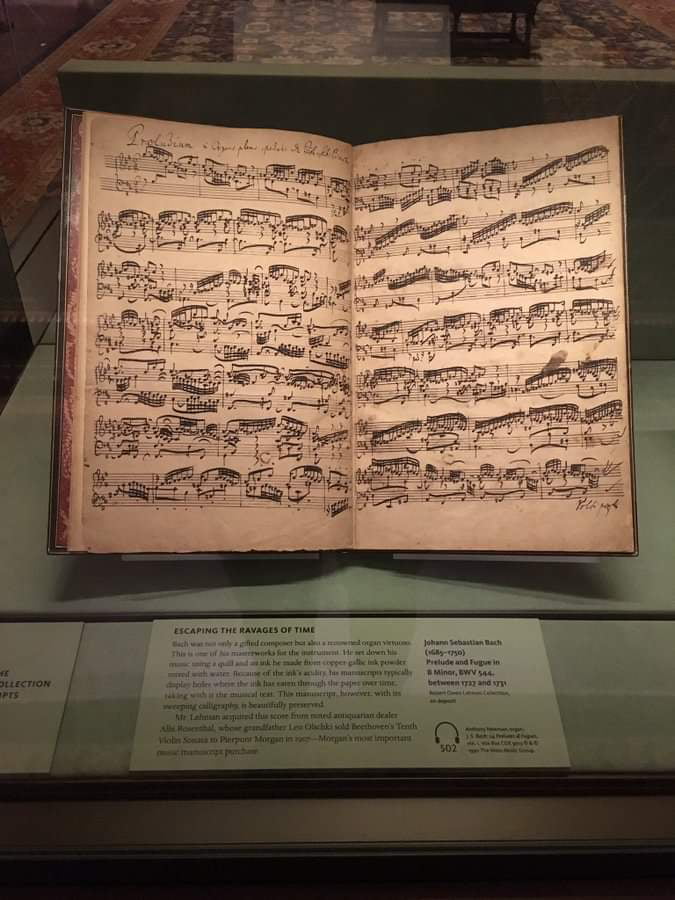 Praeludium
ESCAPING THE RAVAGES OF TIME
Bach was not only a gifted composer but also a renowned organ virtuoso.
This is one of his masterworks for the instrument. He set down his
music using a quill and an ink he made from copper-gallic ink powder
mixed with water. Because of the ink's acidity, his manuscripts typically
display holes where the ink has eaten through the paper over time,
taking with it the musical text. This manuscript, however, with its
sweeping calligraphy, is beautifully preserved.
Mr. Lehman acquired this score from noted antiquarian dealer
Albi Rosenthal, whose grandfather Leo Olschki sold Beethoven's Tenth
Violin Sonata to Pierpont Morgan in 1907—Morgan's most important
music manuscript purchase.
Johann Sebastian Bach
(1685–1750)
Prelude and Fugue in
B Minor, BWV 544,
between 1727 and 1731
Robert Owen Lehman Collection,
on deposit
502
Anthony Newman, organ,
J. S. Bach: 24 Preludes & Fugues,
vol. 1, Vox Box CDX 5013 ℗ & ©
1990 The Moss Music Group.
HE
OLLECTION
PTS